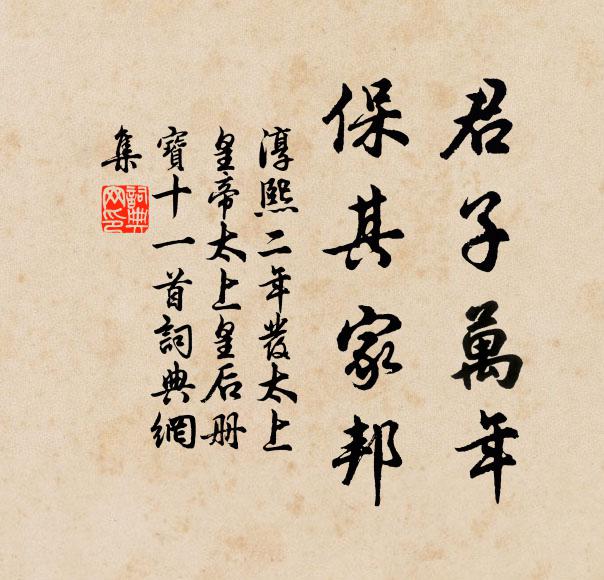 君子萬年
保其家邦
淳熙二年發太上
皇帝太上皇后册
寶十一首詞典網
集
詞典
网印